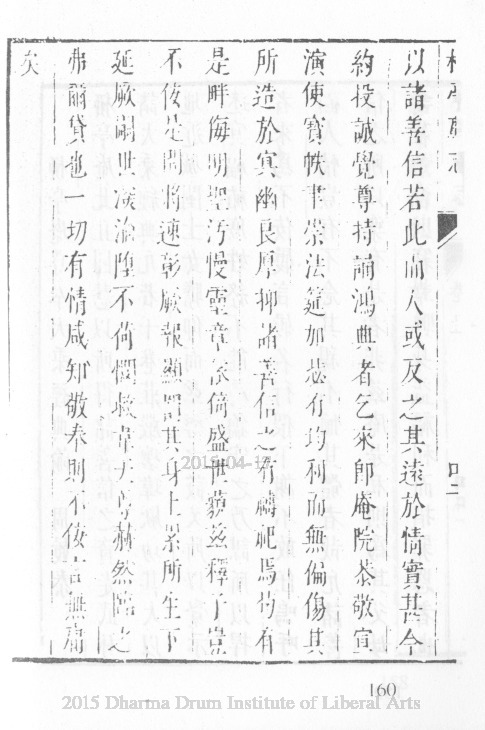 以諸善信若此而人或反之其遠於情實甚今
約投誠覺尊持誦鴻典者乞來即庵院恭敬宣
演使寶帙聿崇法筵加毖有均利而無偏傷其
所造於冥幽良厚抑諸善信之有禱祀焉苟有
是畔侮明聖汚慢靈章忝倚盛世藐茲釋子
不佞是問將速彰厥報顯罰其身上累所生下
延厥嗣世淪陛不尚憫
韋天尊赫然臨之
弗爾貸也一切有情咸知敬奉則不佞言無庸
矣
2015-04-1
160
2015 Dharma Drum Institute of Liberal Arts